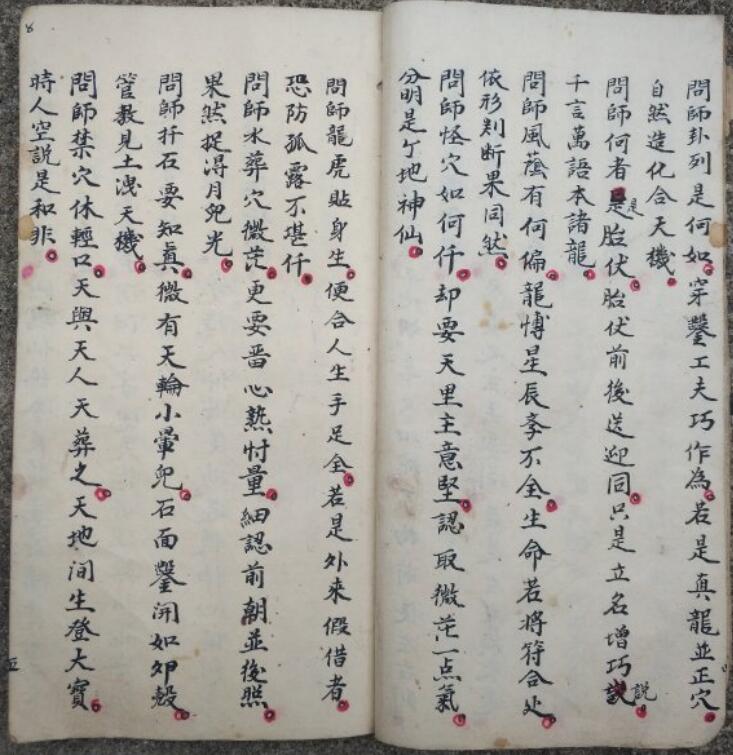 問師卦列是何如穿鑿工夫巧作為若是真龍並正穴
自然造化合天機
問師何者是胎伏胎伏前後送迎同只是立名增巧説
千言萬語本諸龍
問師風蔭有何偏龍愽星辰夆不全生命若將符合处
依形判断果同然
問師怪穴如何仟却要天里主意堅認取微茫一点氣
分明是亇地神仙
問師龍虎貼身生便合人生手足全若是外来假借者
恐防孤露不堪仟
問師水葬穴微茫更要畱心熟忖量細認前朝並後照
果然捉淂月兜光
問師扦石要知真微有天輪小暈兜石面鑿開如夘殻
管教見土洩天機
問師禁穴休輕口天與天人天葬之天地间生登大寳
時人空説是和非
8
五